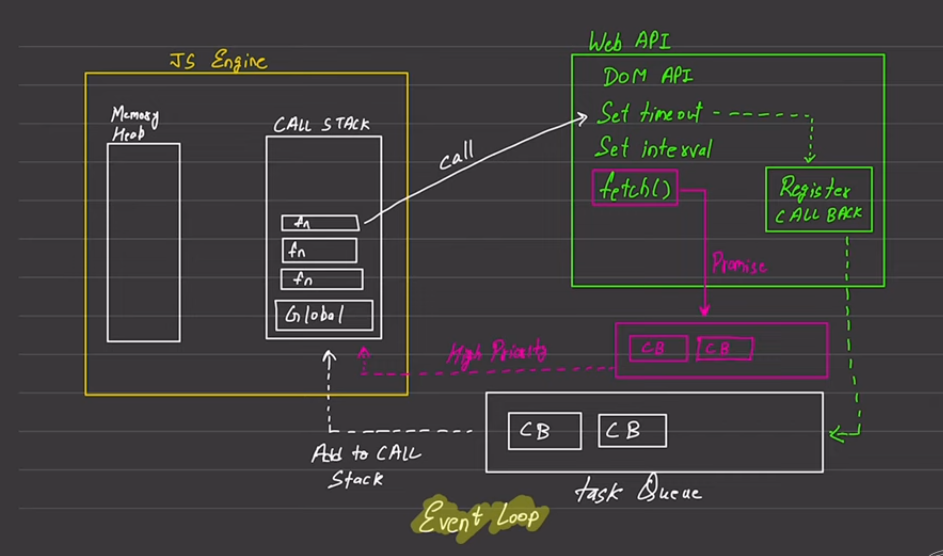 JS Engine
Memory
Heap
CALL STACK
fn
fn
fn
Global
call
Web API
DOM API
Set timeout
Set interval
fetch()
Register
CALL BACK
Promise
CB
CB
High Priority
CB
CB
Add to CALL
Stack
task Queue
Event Loop